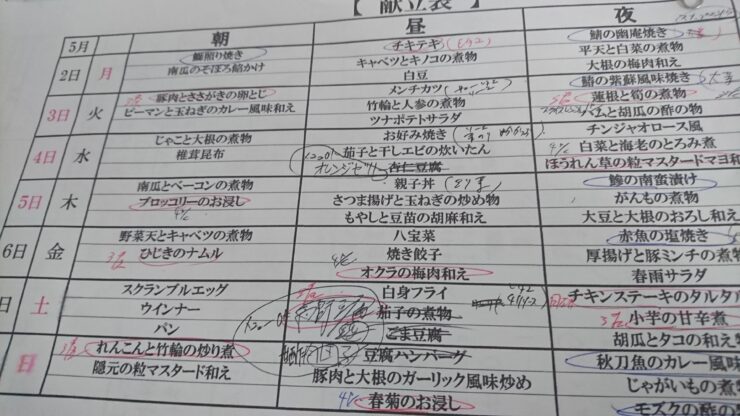 【 献立表 】
5月 朝 昼 夜
2日 月
鰤照り焼き
南瓜のそぼろ餡かけ
チキテキ
キャベツとキノコの煮物
白豆
鯖の幽庵焼き
平天と白菜の煮物
大根の梅肉和え
3日 火
豚肉とささがきの卵とじ
ピーマンと玉ねぎのカレー風味和え
メンチカツ
竹輪と人参の煮物
ツナポテトサラダ
鯖の紫蘇風味焼き
蓮根と筍の煮物
ハムと胡瓜の酢の物
4日 水
じゃこと大根の煮物
椎茸昆布
お好み焼き
茄子と干しエビの炊いたん
オレンジゼリー
杏仁豆腐
チンジャオロース風
白菜と海老のとろみ煮
ほうれん草の粒マスタードマヨ和
5日 木
南瓜とベーコンの煮物
ブロッコリーのお浸し
親子丼
さつま揚げと玉ねぎの炒め物
もやしと豆苗の胡麻和え
鯵の南蛮漬け
がんもの煮物
大豆と大根のおろし和え
6日 金
野菜天とキャベツの煮物
ひじきのナムル
八宝菜
焼き餃子
オクラの梅肉和え
赤魚の塩焼き
厚揚げと豚ミンチの煮物
春雨サラダ
日 土
スクランブルエッグ
ウインナー
パン
白身フライ
茄子の煮物
ごま豆腐
チキンステーキのタルタル
小芋の甘辛煮
胡瓜とタコの和え
日
れんこんと竹輪の炒り煮
隠元の粒マスタード和え
豆腐ハンバーグ
豚肉と大根のガーリック風味炒め
春菊のお浸し
秋刀魚のカレー風味
じゃがいもの煮物
モズクの酢の